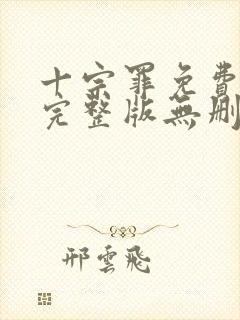 十宗罪免費
完整版無刪
邢雲飛